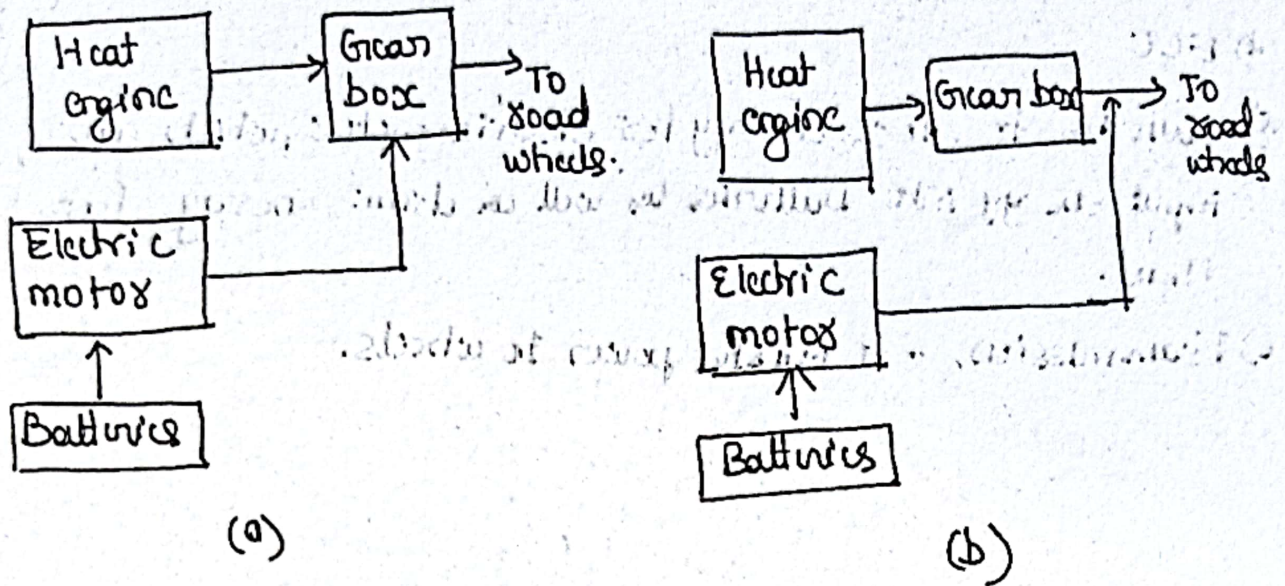 Heat
engine
Gear
box
To
road
wheels.
Electric
motor
Batteries
(a)
Heat
engine
Gear box
To
road
wheels
Electric
motor
Batteries
(b)